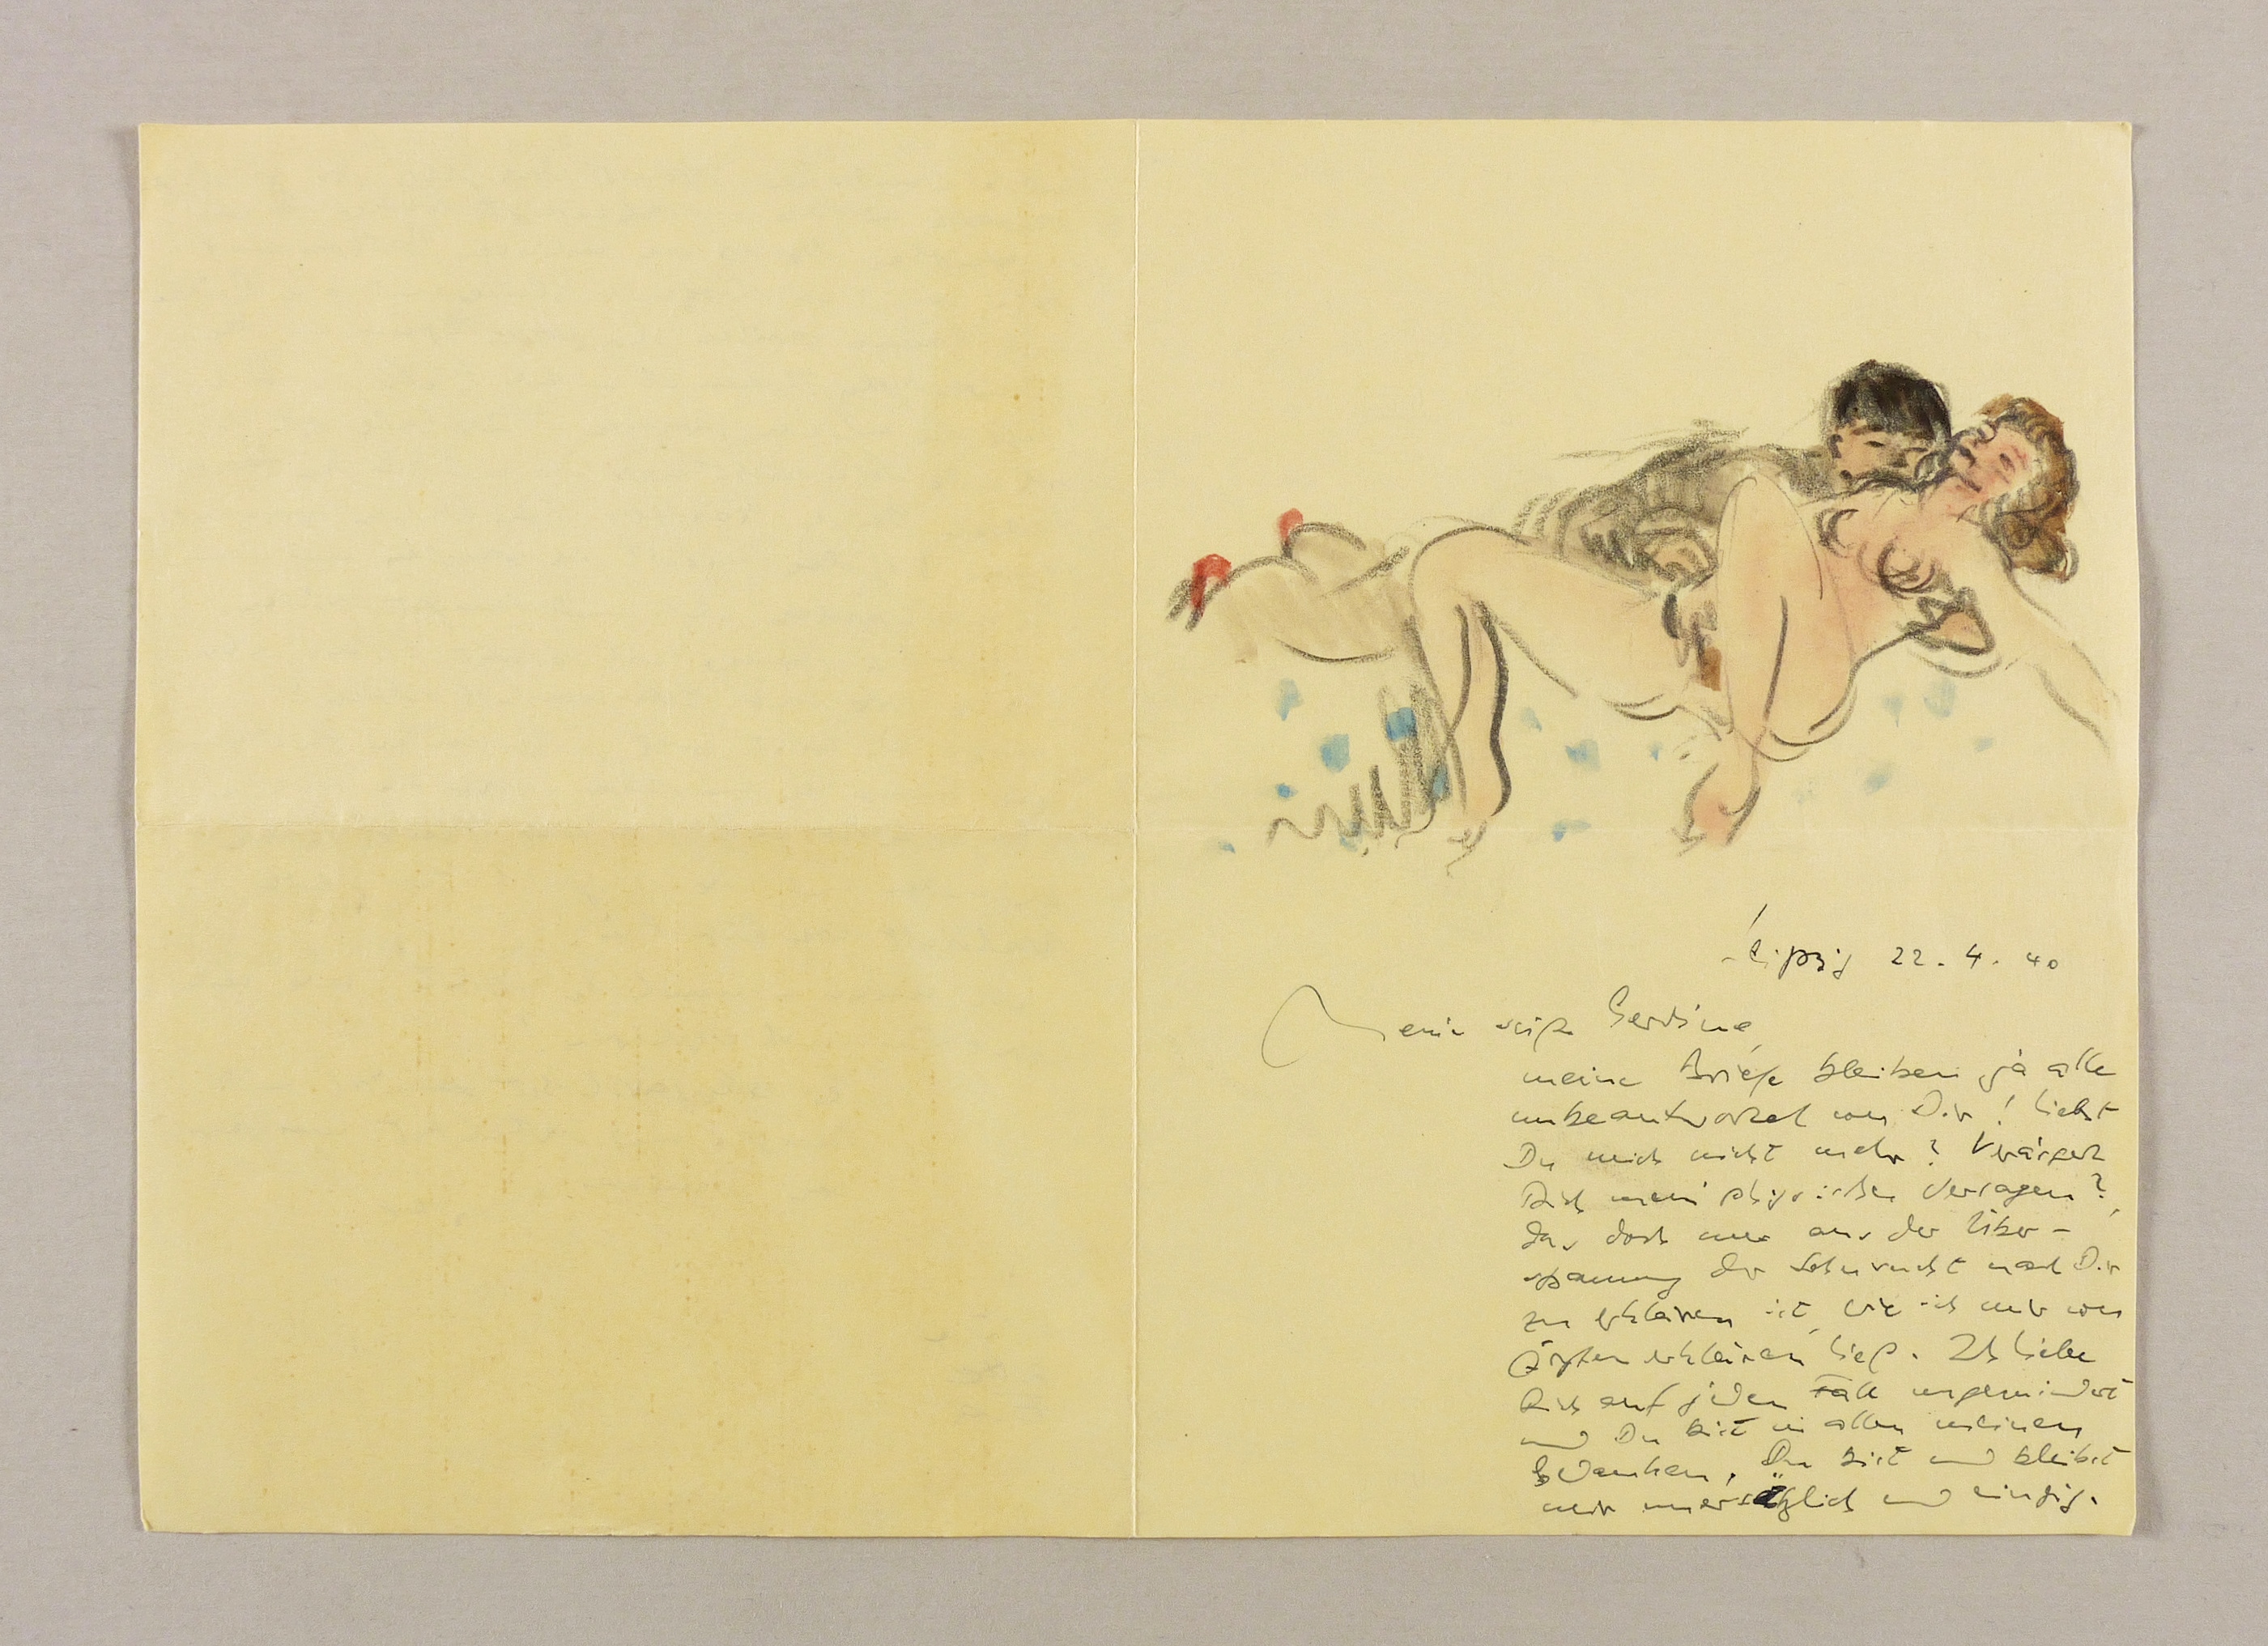 Leipzig 22. 4. 40
Meine süße Gerdine,
meine Briefe bleiben ja alle
unbeantwortet von Dir! Liebst
Du mich nicht mehr? Verärgert
Dich mein physisches Versagen?
das doch nur aus der Über-
spannung der Sehnsucht nach Dir
zu erklären ist, wie ich mir von
Ärzten erklären ließ. Ich liebe
Dich auf jeden Fall ungemindert
und Du bist in allen meinen
Gedanken. Du bist und bleibst
mir unersätzlich und einzig.